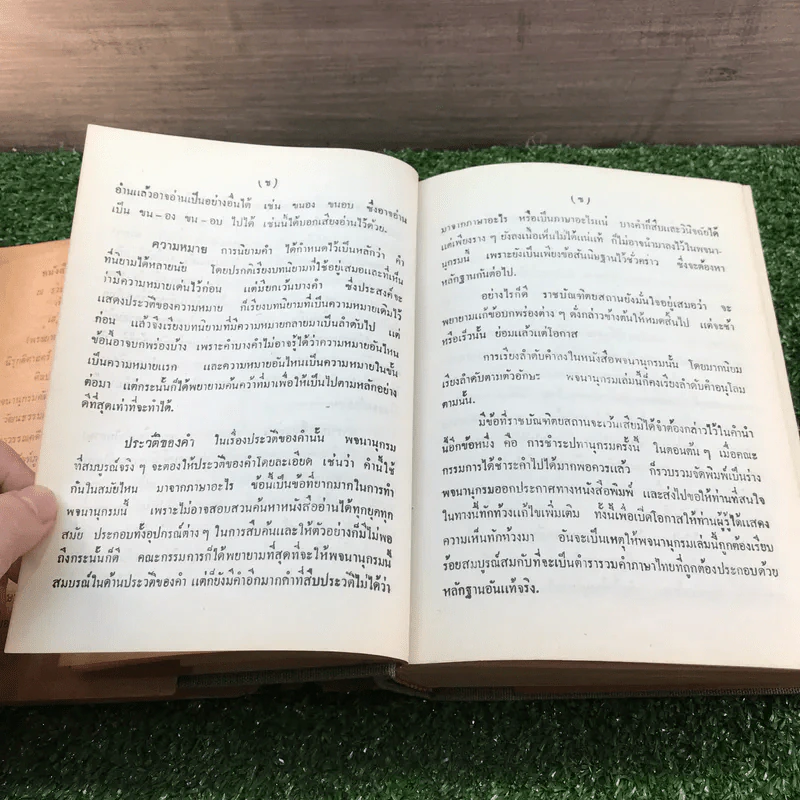 (ช)
อ่านแล้วอาจอ่านเป็นอย่างอื่นได้ เช่น ขนอง ขนอบ ซึ่งอาจอ่าน
เป็น ขน-อง ขน-อบ ไปได้ เช่นนี้ได้บอกเสียงอ่านไว้ด้วย.
ความหมาย การนิยามคำ ได้กำหนดไว้เป็นหลักว่า คำ
ที่นิยามได้หลายนัย โดยปกติเรียงบทนิยามที่ใช้อยู่เสมอและที่เห็น
ว่ามีความหมายเด่นไว้ก่อน แต่มียกเว้นบางคำ ซึ่งประสงค์จะ
แสดงประวัติของความหมาย ก็เรียงบทนิยามที่เป็นความหมายเดิมไว้
ก่อน แล้วจึงเรียงบทนิยามที่มีความหมายกลายมาเป็นลำดับไป แต่
ข้อนี้อาจบกพร่องบ้าง เพราะคำบางคำไม่อาจรู้ได้ว่าความหมายอันไหน
เป็นความหมายแรก และความหมายอันไหนเป็นความหมายในชั้น
ต่อมา แต่กระนั้นก็ได้พยายามค้นคว้าที่มาเพื่อให้เป็นไปตามหลักอย่าง
ดีที่สุดเท่าที่จะทำได้.
ประวัติของคำ ในเรื่องประวัติของคำนั้น พจนานุกรม
ที่สมบูรณ์จริง ๆ จะต้องให้ประวัติของคำโดยละเอียด เช่นว่า คำนี้ใช้
กันในสมัยไหน มาจากภาษาอะไร ข้อนี้เป็นข้อที่ยากมากในการทำ
พจนานุกรมนี้ เพราะไม่อาจสอบสวนค้นหาหนังสืออ่านได้ทุกยุคทุก
สมัย ประกอบทั้งอุปกรณ์ต่าง ๆ ในการสืบค้นและให้ตัวอย่างก็มีไม่พอ
ถึงกระนั้นก็ดี คณะกรรมการก็ได้พยายามที่สุดที่จะให้พจนานุกรมนี้
สมบูรณ์ในด้านประวัติของคำ แต่ก็ยังมีคำอีกมากคำที่สืบประวัติไม่ได้ว่า
มาจากภาษาอะไร หรือเป็นภาษาอะไรแน่ บางคำก็สืบและวินิจฉัยได้
แต่เพียงราง ๆ ยังลงเนื้อเห็นไม่ได้แน่แท้ ก็ไม่อาจนำมาลงไว้ในพจนา-
นุกรมนี้ เพราะยังเป็นเพียงข้อสันนิษฐานไว้ชั่วคราว ซึ่งจะต้องหา
หลักฐานกันต่อไป.
อย่างไรก็ดี ราชบัณฑิตยสถานยังมั่นใจอยู่เสมอว่า จะ
พยายามแก้ข้อบกพร่องต่าง ๆ ดังกล่าวข้างต้นให้หมดสิ้นไป แต่จะช้า
หรือเร็วนั้น ย่อมแล้วแต่โอกาส
การเรียงลำดับคำลงในหนังสือพจนานุกรมนั้น โดยมากนิยม
เรียงลำดับตามตัวอักษร พจนานุกรมเล่มนี้ก็คงเรียงลำดับคำอนุโลม
ตามนั้น.
มีข้อที่ราชบัณฑิตยสถานจะเว้นเสียมิได้จำต้องกล่าวไว้ในคำนำ
นี้อีกข้อหนึ่ง คือ การชำระปทานุกรมครั้งนี้ ในตอนต้น ๆ เมื่อคณะ
กรรมการได้ชำระคำไปได้มากพอควรแล้ว ก็รวบรวมจัดพิมพ์เป็นร่าง
พจนานุกรมออกประกาศทางหนังสือพิมพ์ และส่งไปขอให้ท่านที่สนใจ
ในทางนี้ทักท้วงแก้ไขเพิ่มเติม ทั้งนี้ก็เพื่อเปิดโอกาสให้ท่านผู้รู้ได้แสดง
ความเห็นทักท้วงมา อันจะเป็นเหตุให้พจนานุกรมเล่มนี้ถูกต้องเรียบ
ร้อยสมบูรณ์สมกับที่จะเป็นตำรารวมคำภาษาไทยที่ถูกต้องประกอบด้วย
หลักฐานอันแท้จริง.